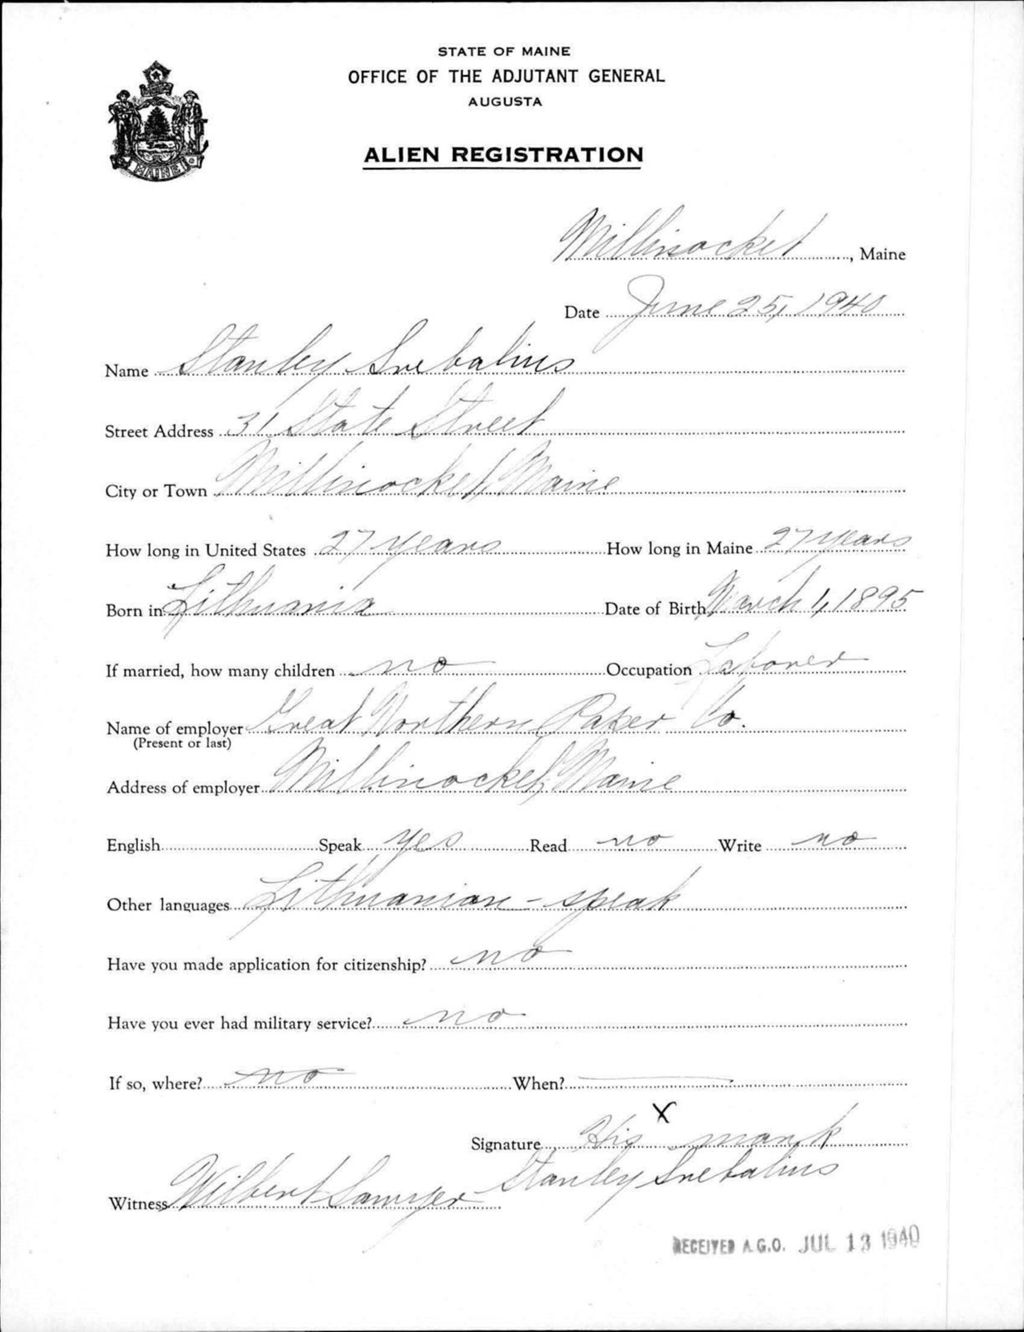 STATE OF MAINE
OFFICE OF THE ADJUTANT GENERAL
AUGUSTA
ALIEN REGISTRATION
MAINE
Millinocket, Maine
Date June 25, 1940
Name Stanley Snebalius
Street Address 31 State Street
City or Town Millinocket, Maine
How long in United States 27 years How long in Maine 27 years
Born in Lithuania Date of Birth March 1, 1895
If married, how many children no Occupation Laborer
Name of employer Great Northern Paper Co.
(Present or last)
Address of employer Millinocket, Maine
English Speak yes Read no Write no
Other languages Lithuanian - speak
Have you made application for citizenship? no
Have you ever had military service? no
If so, where? no When?
X
Signature His mark
Stanley Snebalius
Witness Wilbert Sawyer
RECEIVED A.G.O. JUL 13 1940